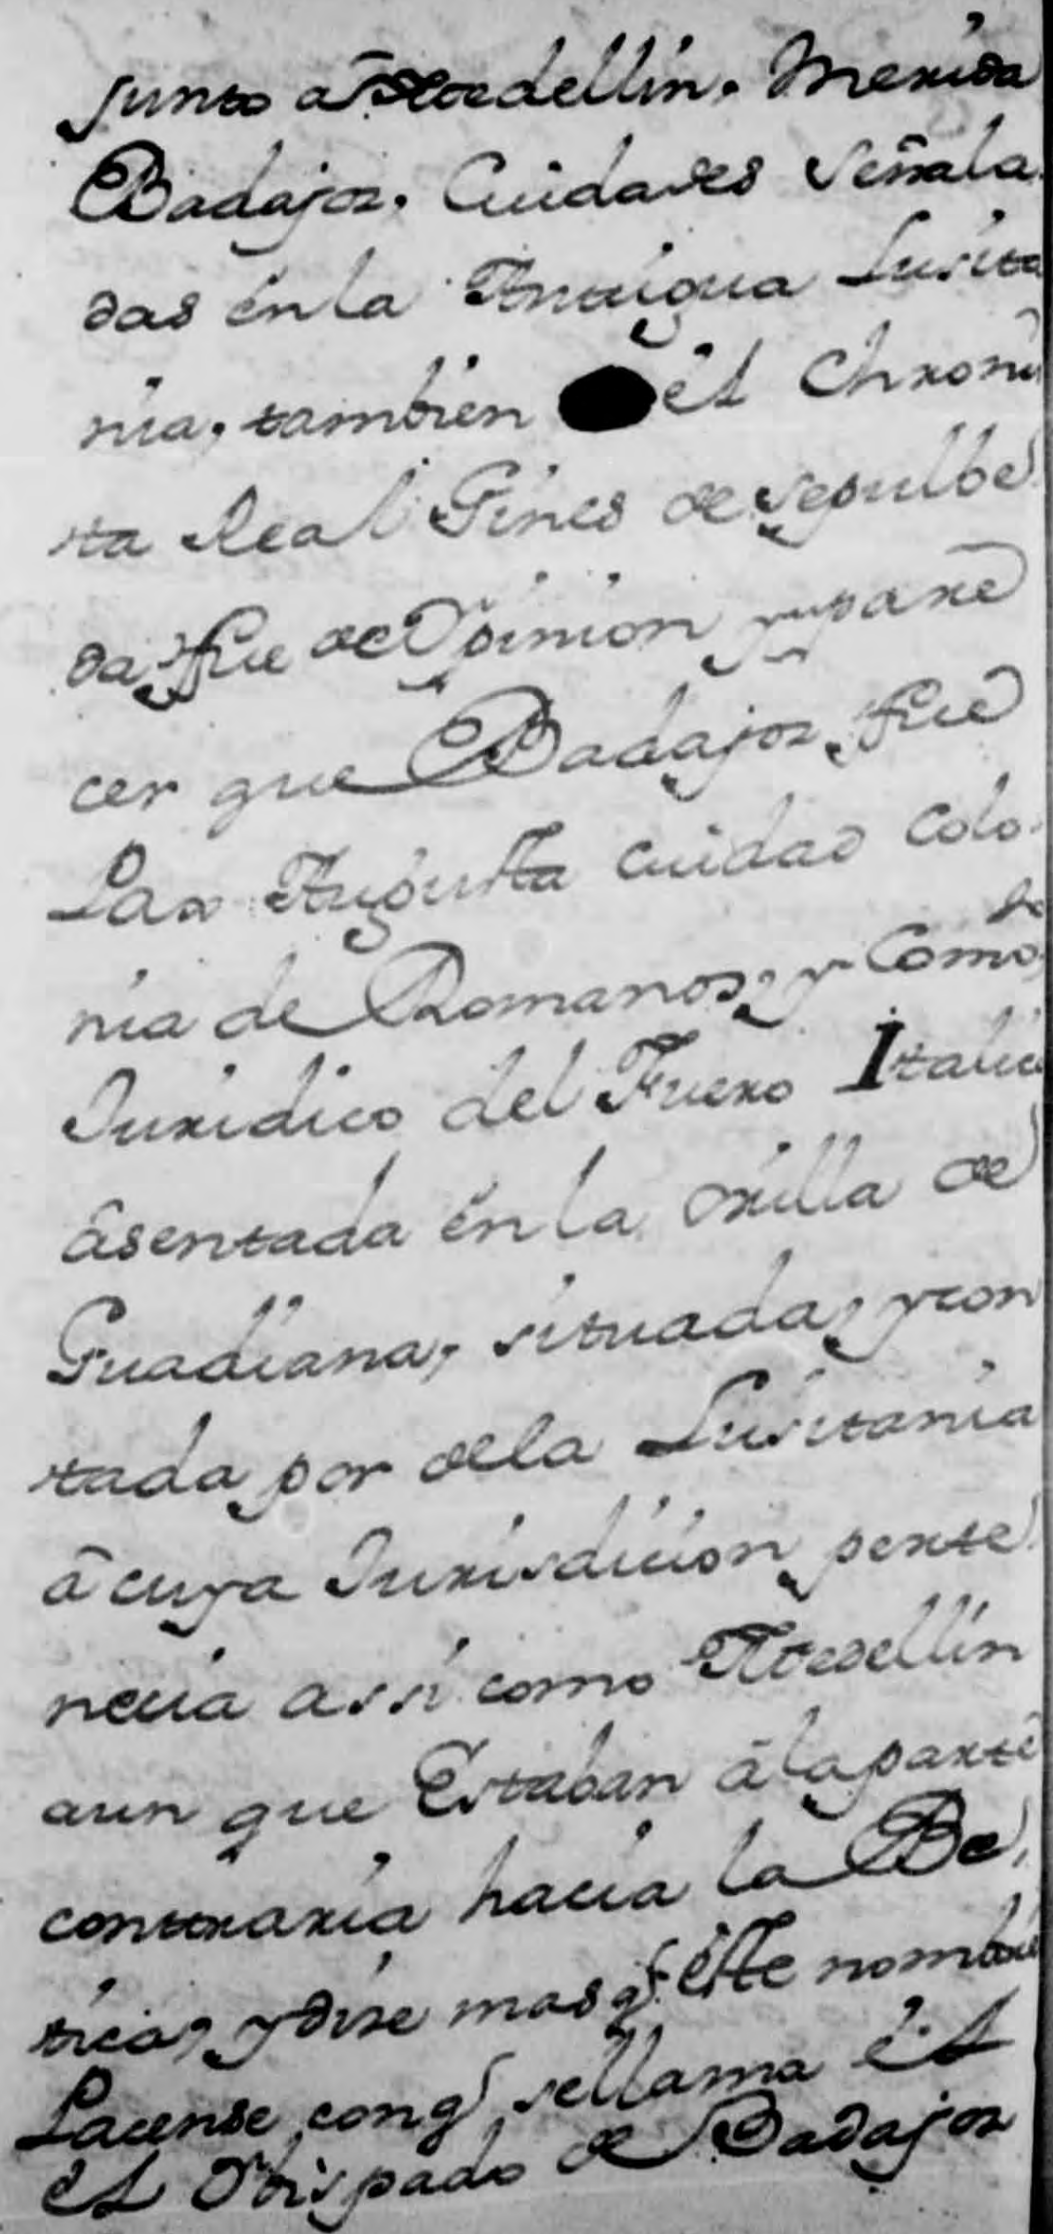 Junto â Medellin, Merida
Badajoz, Ciudades Señala
das ên la Antigua Lusita
nia, tambien êl Chroni
sta Real Gines de Sepulbe
da, fue de Opinion y pare
cer que Badajoz, fue
Pax Augusta ciudad Colo
nia de Romanos, y Combto
Juridico del Fuero Italico
âsentada ên la orilla de
Guadiana, situada, y con
tada por de la Lusitania
â cuya Jurisdicion perte
necia assi como Medellin
aun que Estaban â la parte
contraria hacia la Be
tica, y dise mas q.e êste nombre
Pacense con q.e se llama êl
êl Obispado de Badajoz